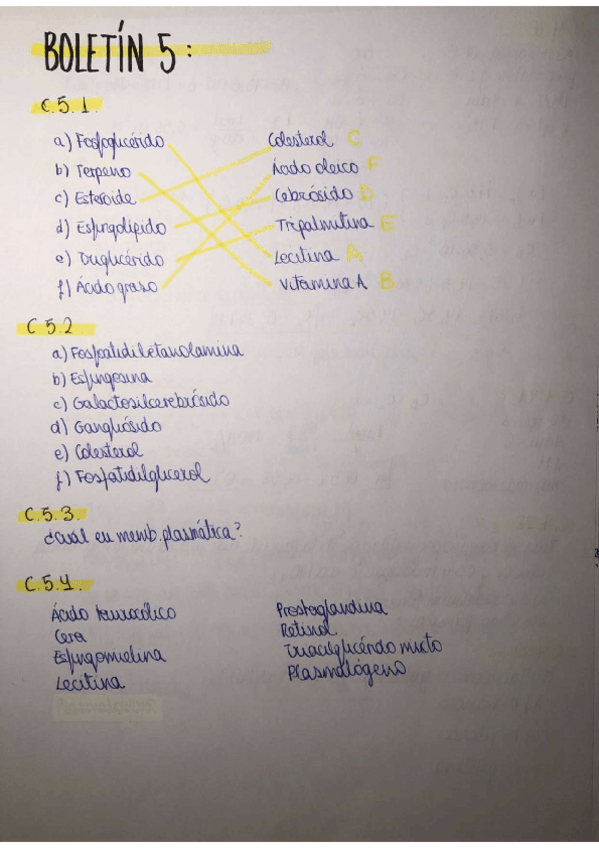 BOLETÍN 5:
C.5.1.
a) Fosfoglicérido Colesterol C
b) Terpeno Ácido oleico F
c) Esteroide Cebrósido D
d) Esfingolípido Tripalmitina E
e) Triglicérido Lecitina A
f) Ácido graso Vitamina A B
C 5.2
a) Fosfatidiletanolamina
b) Esfingosina
c) Galactosilcerebrósido
d) Gangliósido
e) Colesterol
f) Fosfatidilglicerol
C.5.3.
¿cuál en memb. plasmática?
C.5.4.
Ácido taurocólico Prostaglandina
Cera Retinol
Esfingomielina Triacilglicérido mixto
Lecitina Plasmalógeno